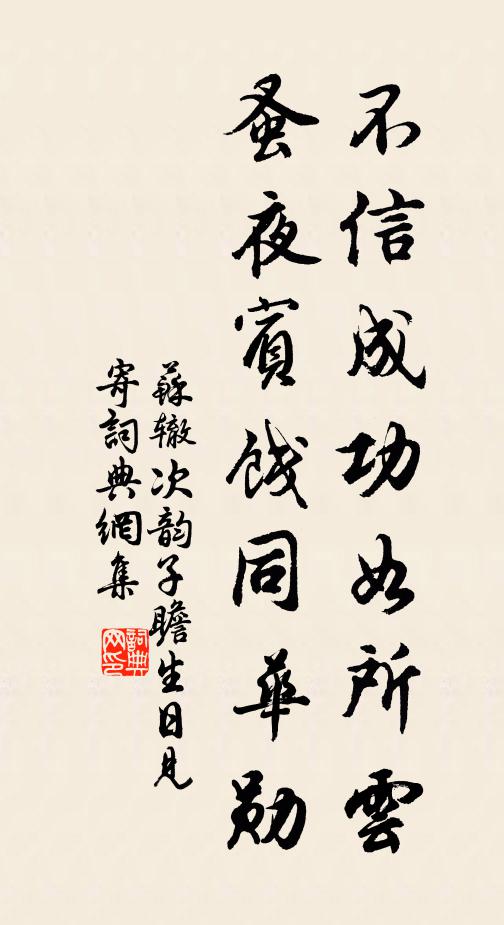 不信成功如所雲
蚤夜賓餞同華勋
蘇辙次韵子瞻生日見
寄詞典網集
詞典網印